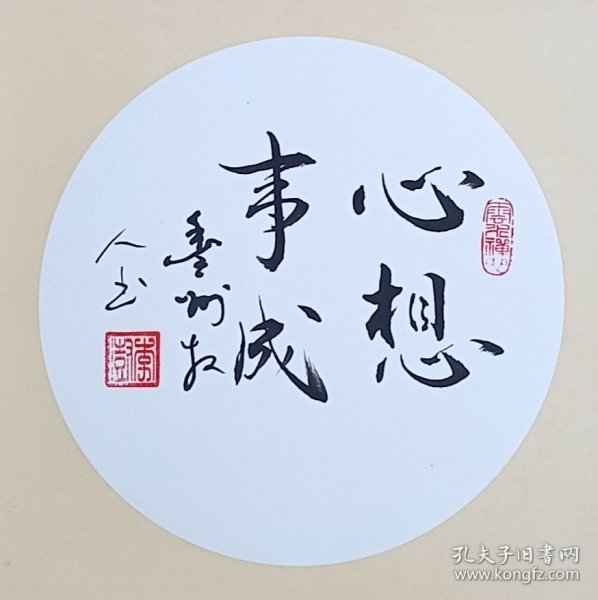 心想
事成
州
人书
孔夫子旧書网
www.kongfz.com